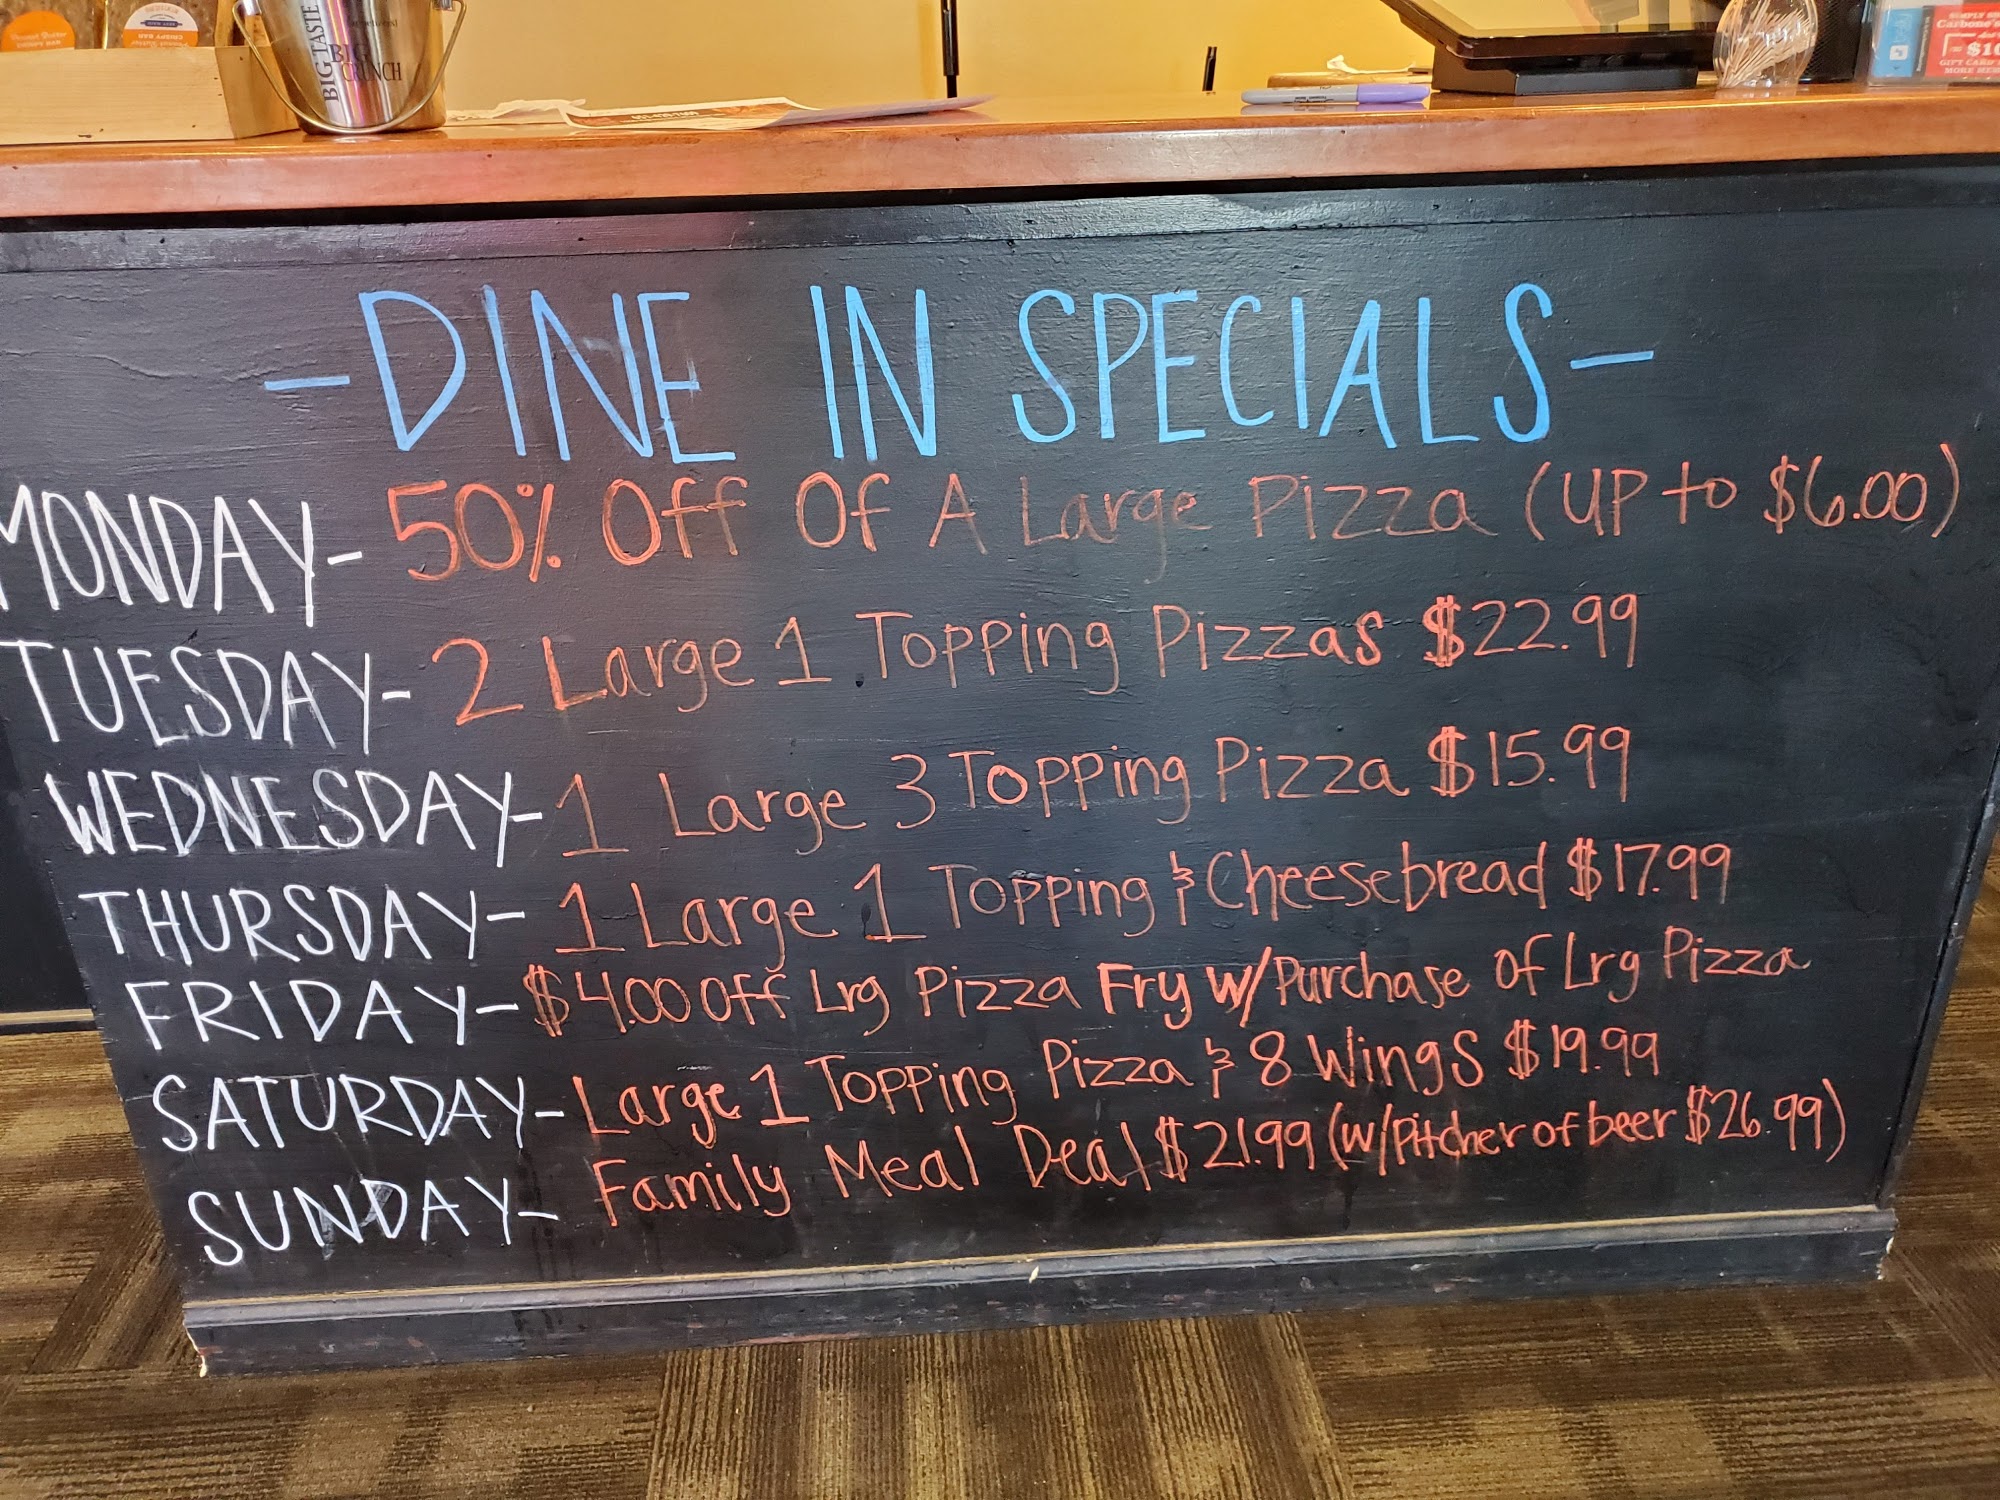 BIG TASTE
BIG CRUNCH
CRISPY BAR
Carbone's
GIFT CARD
-DINE IN SPECIALS-
MONDAY- 50% Off Of A Large Pizza (UP to $6.00)
TUESDAY- 2 Large 1 Topping Pizzas $22.99
WEDNESDAY- 1 Large 3 Topping Pizza $15.99
THURSDAY- 1 Large 1 Topping & Cheesebread $17.99
FRIDAY- $4.00 Off Lrg Pizza Fry w/Purchase of Lrg Pizza
SATURDAY- Large 1 Topping Pizza & 8 Wings $19.99
SUNDAY- Family Meal Deal $21.99 (w/Pitcher of beer $26.99)